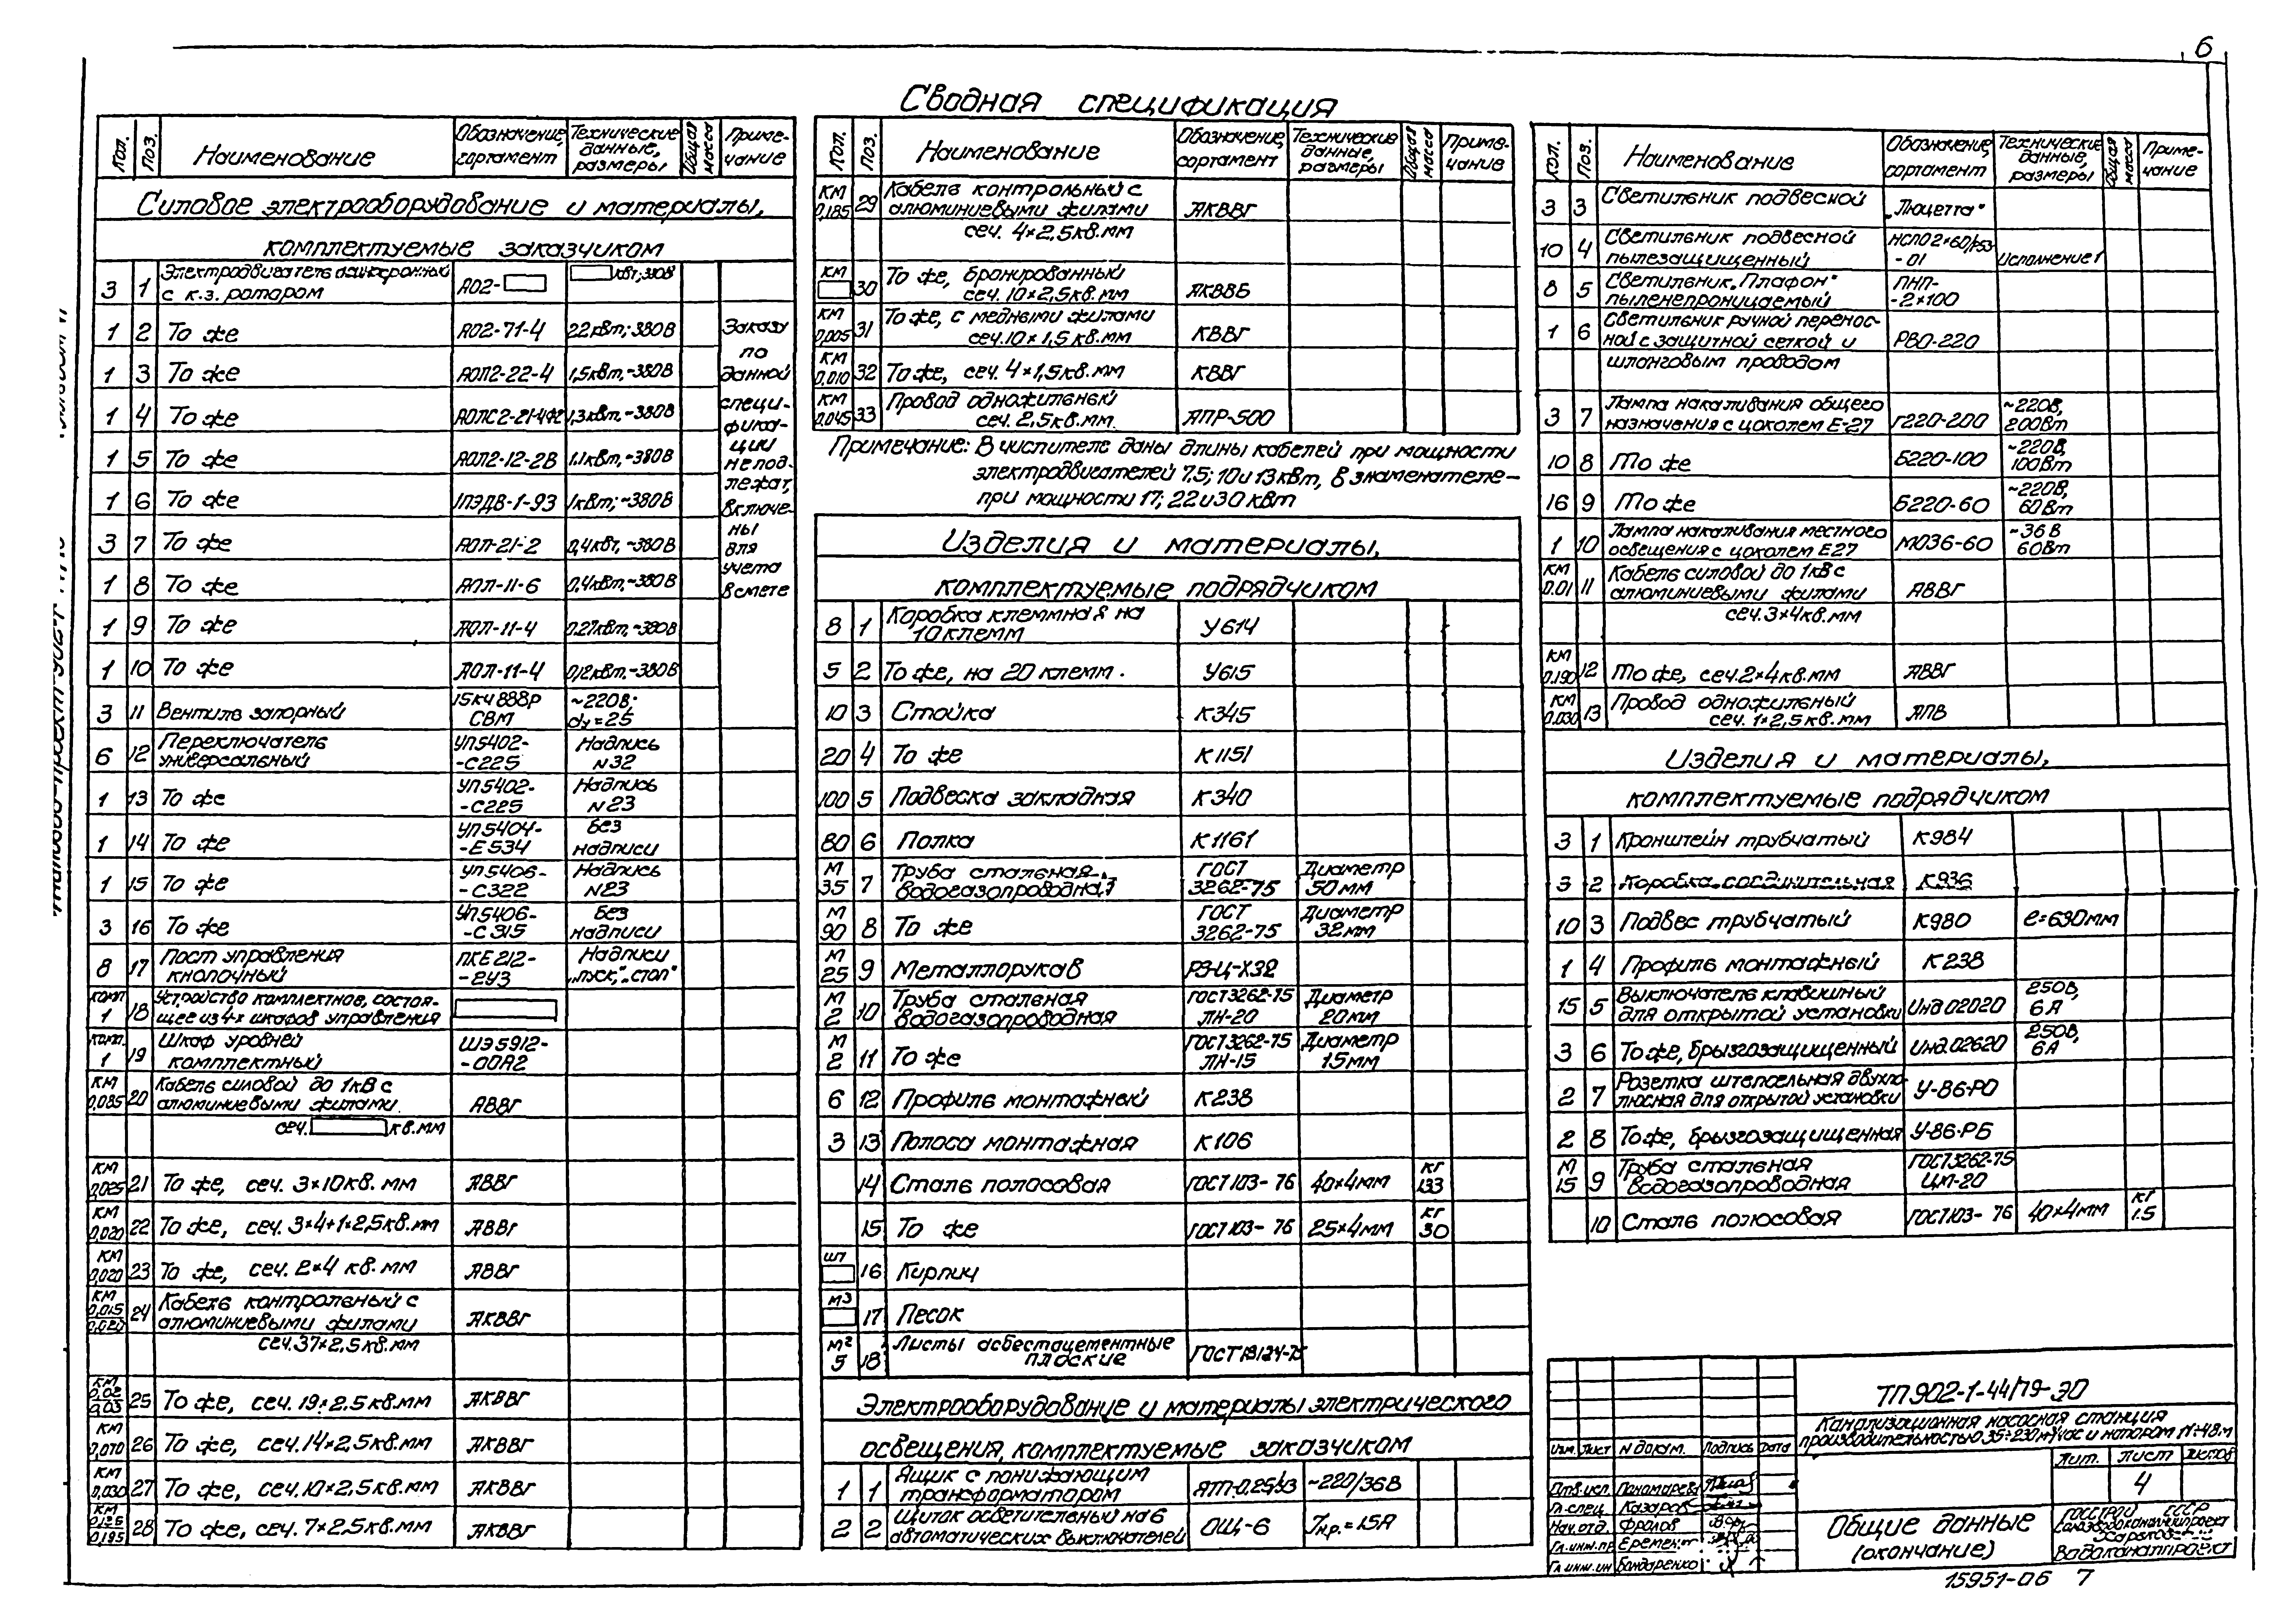 6
Сводная спецификация
Кол. Поз. Наименование Обозначение, сортамент Технические данные, размеры Общая масса Примечание
Силовое электрооборудование и материалы,
комплектуемые заказчиком
3 1 Электродвигатель асинхронный с к.з. ротором АО2- кВт; 380В
1 2 То же АО2-71-4 22кВт; ~380В
1 3 То же АОЛ2-22-4 1,5кВт, ~380В
1 4 То же АОЛС2-21-4Ф2 1,3кВт, ~380В
1 5 То же АОЛ2-12-2В 1.1кВт, ~380В
1 6 То же 1ПЭДВ-1-93 1кВт; ~380В
3 7 То же АОЛ-21-2 0,4кВт, ~380В
1 8 То же АОЛ-11-6 0,4кВт, ~380В
1 9 То же АОЛ-11-4 0.27кВт, ~380В
1 10 То же АОЛ-11-4 0,12кВт, ~380В
Заказу
по
данной
специ-
фика-
ции
не под-
лежат,
включе-
ны
для
учета
в смете
3 11 Вентиль запорный 15кч888р СВМ ~220В; dу=25
6 12 Переключатель универсальный УП5402- -С225 Надпись N32
1 13 То же УП5402- -С225 Надпись N23
1 14 То же УП5404- -Е534 без надписи
1 15 То же УП5406- -С322 Надпись N23
3 16 То же УП5406- -С315 без надписи
8 17 Пост управления кнопочный ПКЕ212- -2У3 Надписи „пуск,“ „стоп“
комп. 1 18 Устройство комплектное, состоя- щее из 4х шкафов управления
комп. 1 19 Шкаф уровней комплектный ШЭ5912- -ООА2
км 0,085 20 Кабель силовой до 1кВ с алюминиевыми жилами АВВГ
сеч. кв.мм
км 0,025 21 То же, сеч. 3×10кв. мм АВВГ
км 0,020 22 То же, сеч. 3×4+1×2,5кв.мм АВВГ
км 0,020 23 То же, сеч. 2×4 кв. мм АВВГ
км 0,015 0,020 24 Кабель контрольный с алюминиевыми жилами АКВВГ
сеч.37×2,5кв.мм
км 0,02 0,03 25 То же, сеч.19×2.5кв.мм АКВВГ
км 0,070 26 То же, сеч.14×2,5кв.мм АКВВГ
км 0,030 27 То же, сеч.10×2,5кв.мм АКВВГ
км 0,185 28 То же, сеч.7×2,5кв.мм АКВВГ
Кол. Поз. Наименование Обозначение, сортамент Технические данные, размеры Общая масса Примечание
км 0,185 29 Кабель контрольный с алюминиевыми жилами АКВВГ
сеч. 4×2,5кв.мм
км 30 То же, бронированный сеч.10×2,5кв.мм АКВВБ
км 0,005 31 То же, с медными жилами сеч.10×1,5кв.мм КВВГ
км 0,010 32 То же, сеч. 4×1,5кв.мм КВВГ
км 0,045 33 Провод одножильный сеч. 2,5кв.мм. АПР-500
Примечание: В числителе даны длины кабелей при мощности
электродвигателей 7.5; 10 и 13кВт, в знаменателе-
при мощности 17; 22 и 30 кВт
Изделия и материалы,
комплектуемые подрядчиком
8 1 Коробка клеммная на 10 клемм У614
5 2 То же, на 20 клемм. У615
10 3 Стойка К345
20 4 То же К1151
100 5 Подвеска закладная К340
80 6 Полка К1161
м 35 7 Труба стальная водогазопроводная ГОСТ 3262-75 Диаметр 50мм
м 90 8 То же ГОСТ 3262-75 Диаметр 32мм
м 25 9 Металлорукав РЗ-Ц-Х32
м 2 10 Труба стальная водогазопроводная ГОСТ3262-75 ЛН-20 Диаметр 20мм
м 2 11 То же ГОСТ3262-75 ЛН-15 Диаметр 15мм
6 12 Профиль монтажный К238
3 13 Полоса монтажная К106
14 Сталь полосовая ГОСТ103-76 40×4мм кг 133
15 То же ГОСТ103-76 25×4мм кг 30
шт 16 Кирпич
м3 17 Песок
м2 5 18 Листы асбестацементные плоские ГОСТ18124-75
Электрооборудование и материалы электрического
освещения, комплектуемые заказчиком
1 1 Ящик с понижающим трансформатором ЯТП-0.25У3 ~220/36В
2 2 Щиток осветительный на 6 автоматических выключателей ОЩ-6 Jн.р.=15А
Кол. Поз. Наименование Обозначение, сортамент Технические данные, размеры Общая масса Примечание
3 3 Светильник подвесной „Люцетта“
10 4 Светильник подвесной пылезащищенный НСП02×60/р53 -01 Исполнение 1
8 5 Светильник „Плафон“ пыленепроницаемый ПНП- -2×100
1 6 Светильник ручной перенос- ной с защитной сеткой и РВО-220
шланговым проводом
3 7 Лампа накаливания общего назначения с цоколем Е-27 Г220-200 ~220В, 200Вт
10 8 То же Б220-100 ~220В, 100Вт
16 9 То же Б220-60 ~220В, 60Вт
1 10 Лампа накаливания местного освещения с цоколем Е27 МО36-60 ~36В 60Вт
км 0.01 11 Кабель силовой до 1кВ с алюминиевыми жилами АВВГ
сеч.3×4кв.мм
км 0.190 12 То же, сеч.2×4кв.мм АВВГ
км 0.030 13 Провод одножильный сеч.1×2,5кв.мм АПВ
Изделия и материалы,
комплектуемые подрядчиком
3 1 Кронштейн трубчатый К984
3 2 Коробка соединительная К936
10 3 Подвес трубчатый К980 ℓ=630мм
1 4 Профиль монтажный К238
15 5 Выключатель клавишный для открытой установки Инд.02020 250В, 6А
3 6 То же, брызгозащищенный Инд.02620 250В, 6А
2 7 Розетка штепсельная двухпо- люсная для открытой установки У-86-РО
2 8 То же, брызгозащищенная У-86-РБ
м 15 9 Труба стальная водогазопроводная ГОСТ3262-75 ЦМ-20
10 Сталь полосовая ГОСТ103-76 40×4мм кг 1.5
ТП902-1-44/79-ЭО
Канализационная насосная станция
производительностью 35÷230м³/час и напором 11÷48м
Изм. Лист N докум. Подпись Дата
Лит. Лист Листов
4
Отв.исп. Пономарева
Гл.спец. Казаров
Нач.отд. Фролов
Гл.инж.пр Еременко
Гл.инж.ин Бондаренко
Общие данные
(окончание)
ГОССТРОЙ СССР
Союзводоканалпроект
Харьковский
Водоканалпроект
15951-06 7